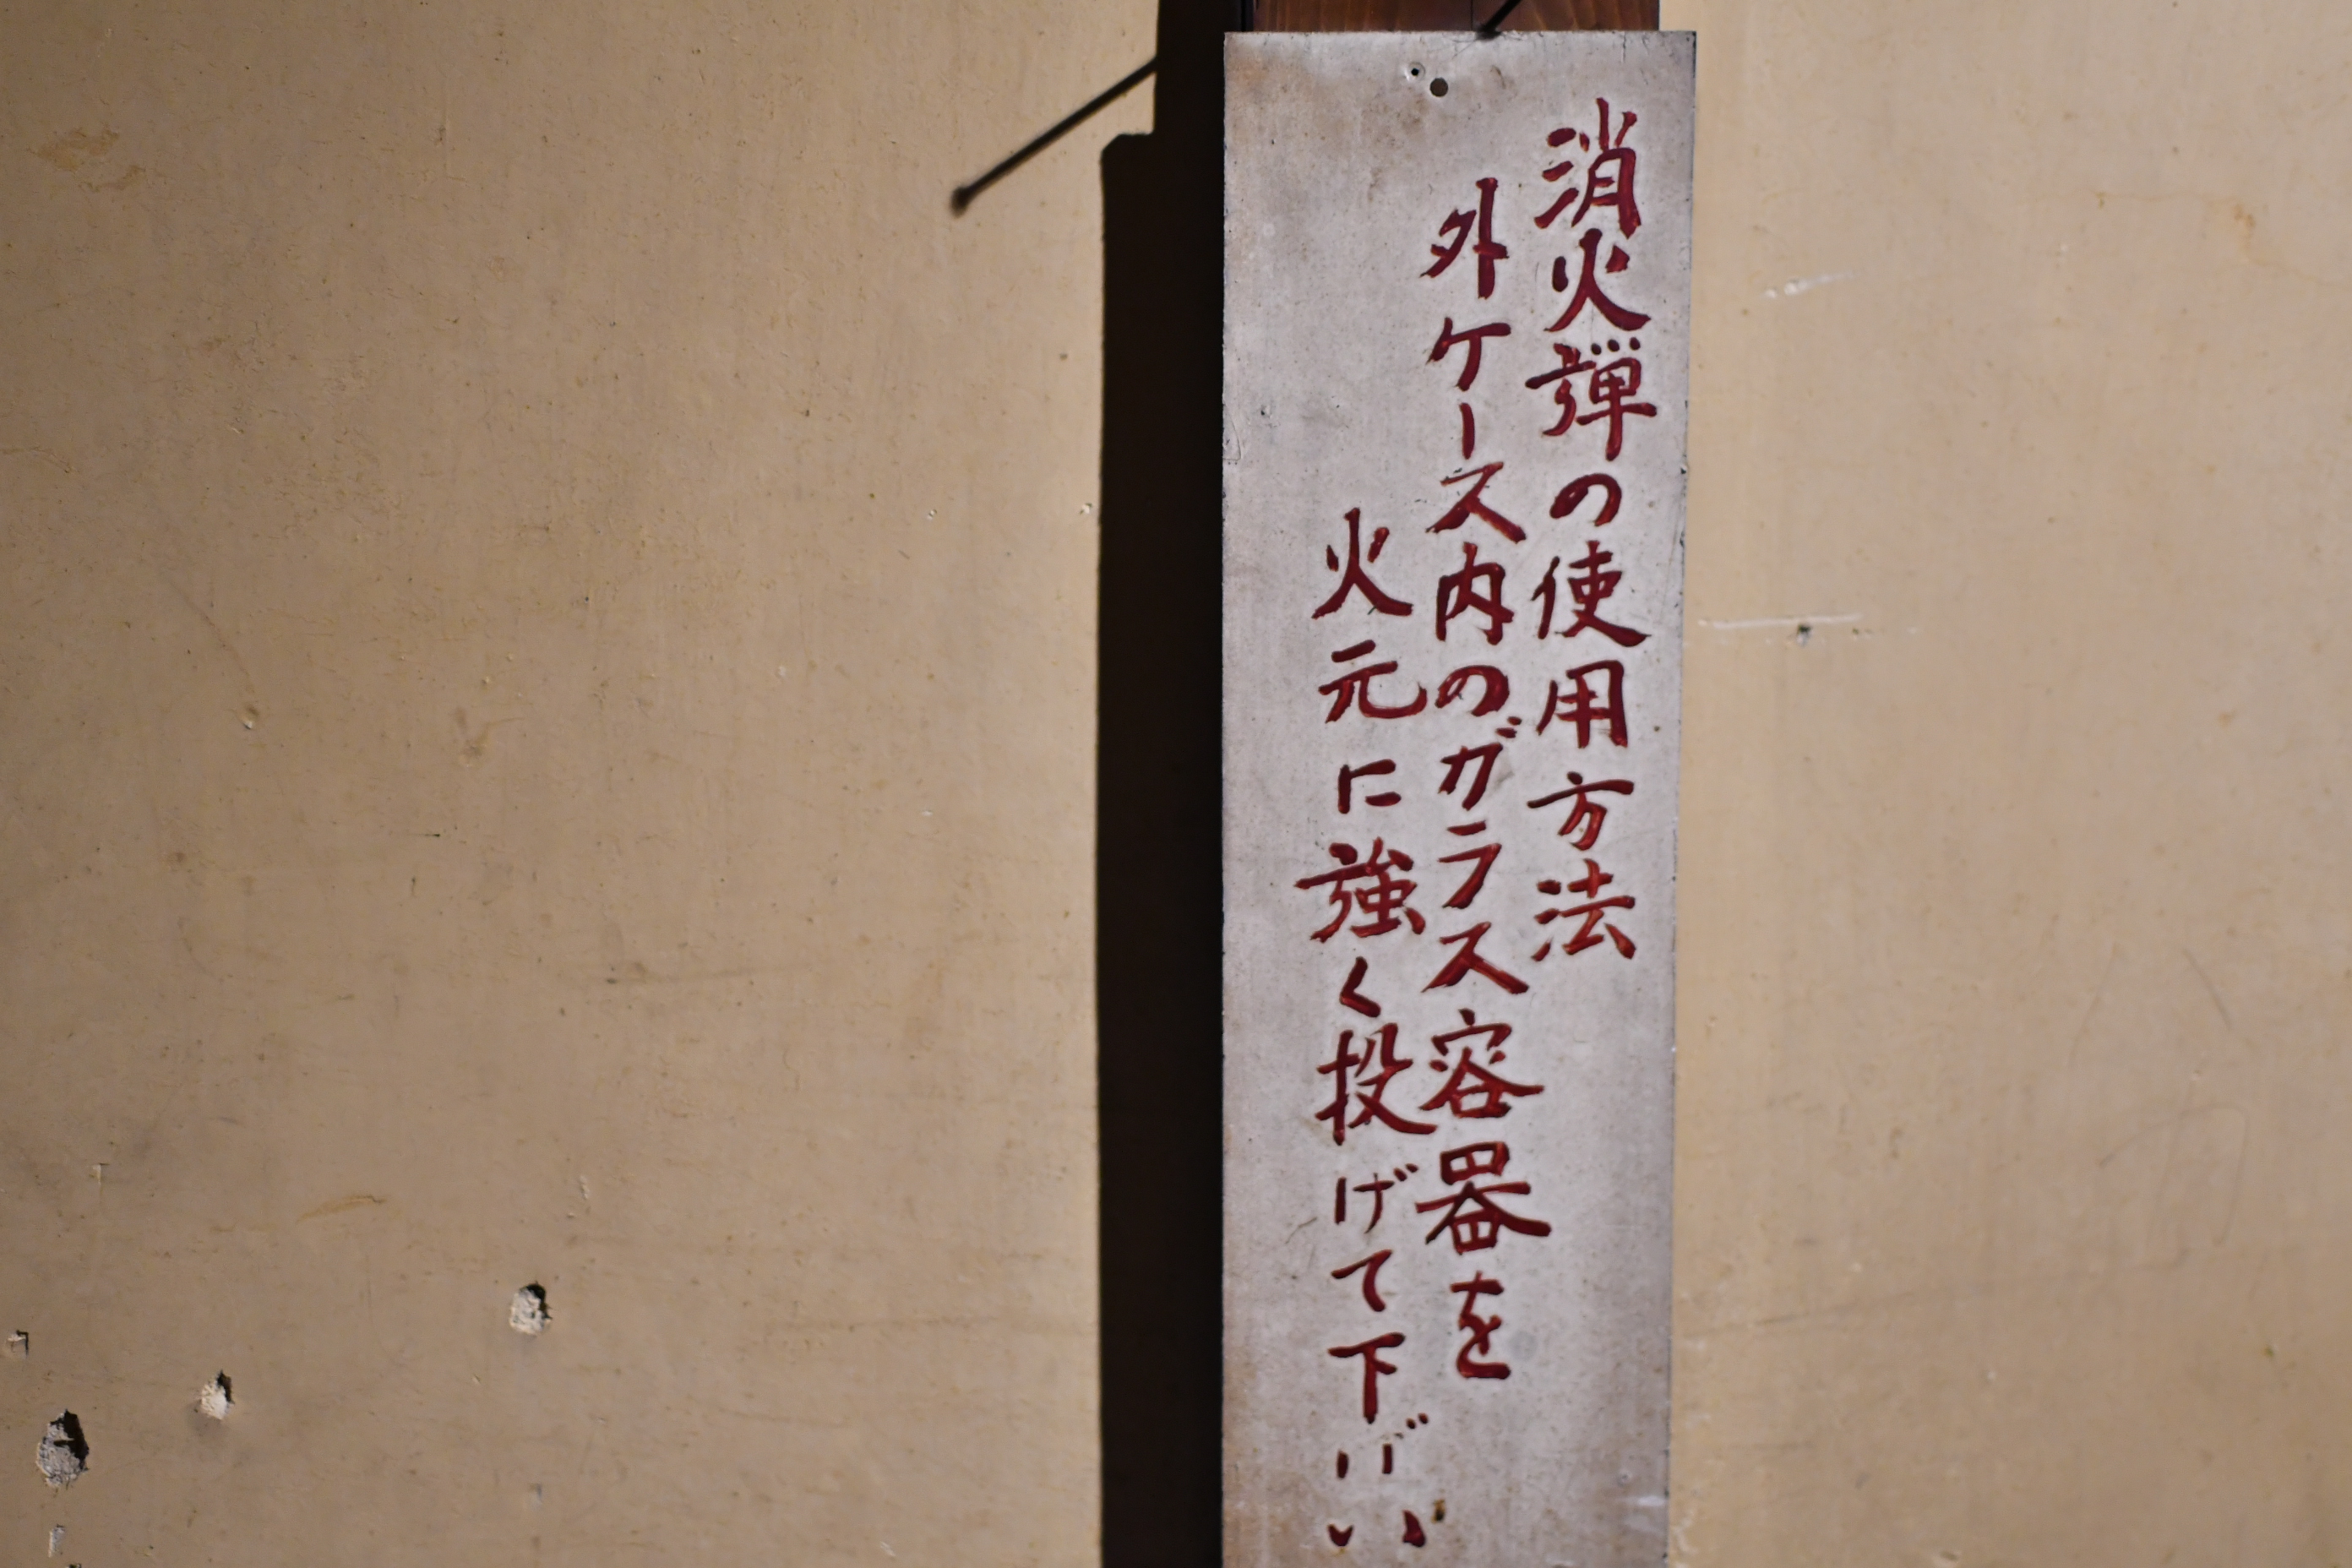 消火弾の使用方法
外ケース内のガラス容器を
火元に強く投げて下さい